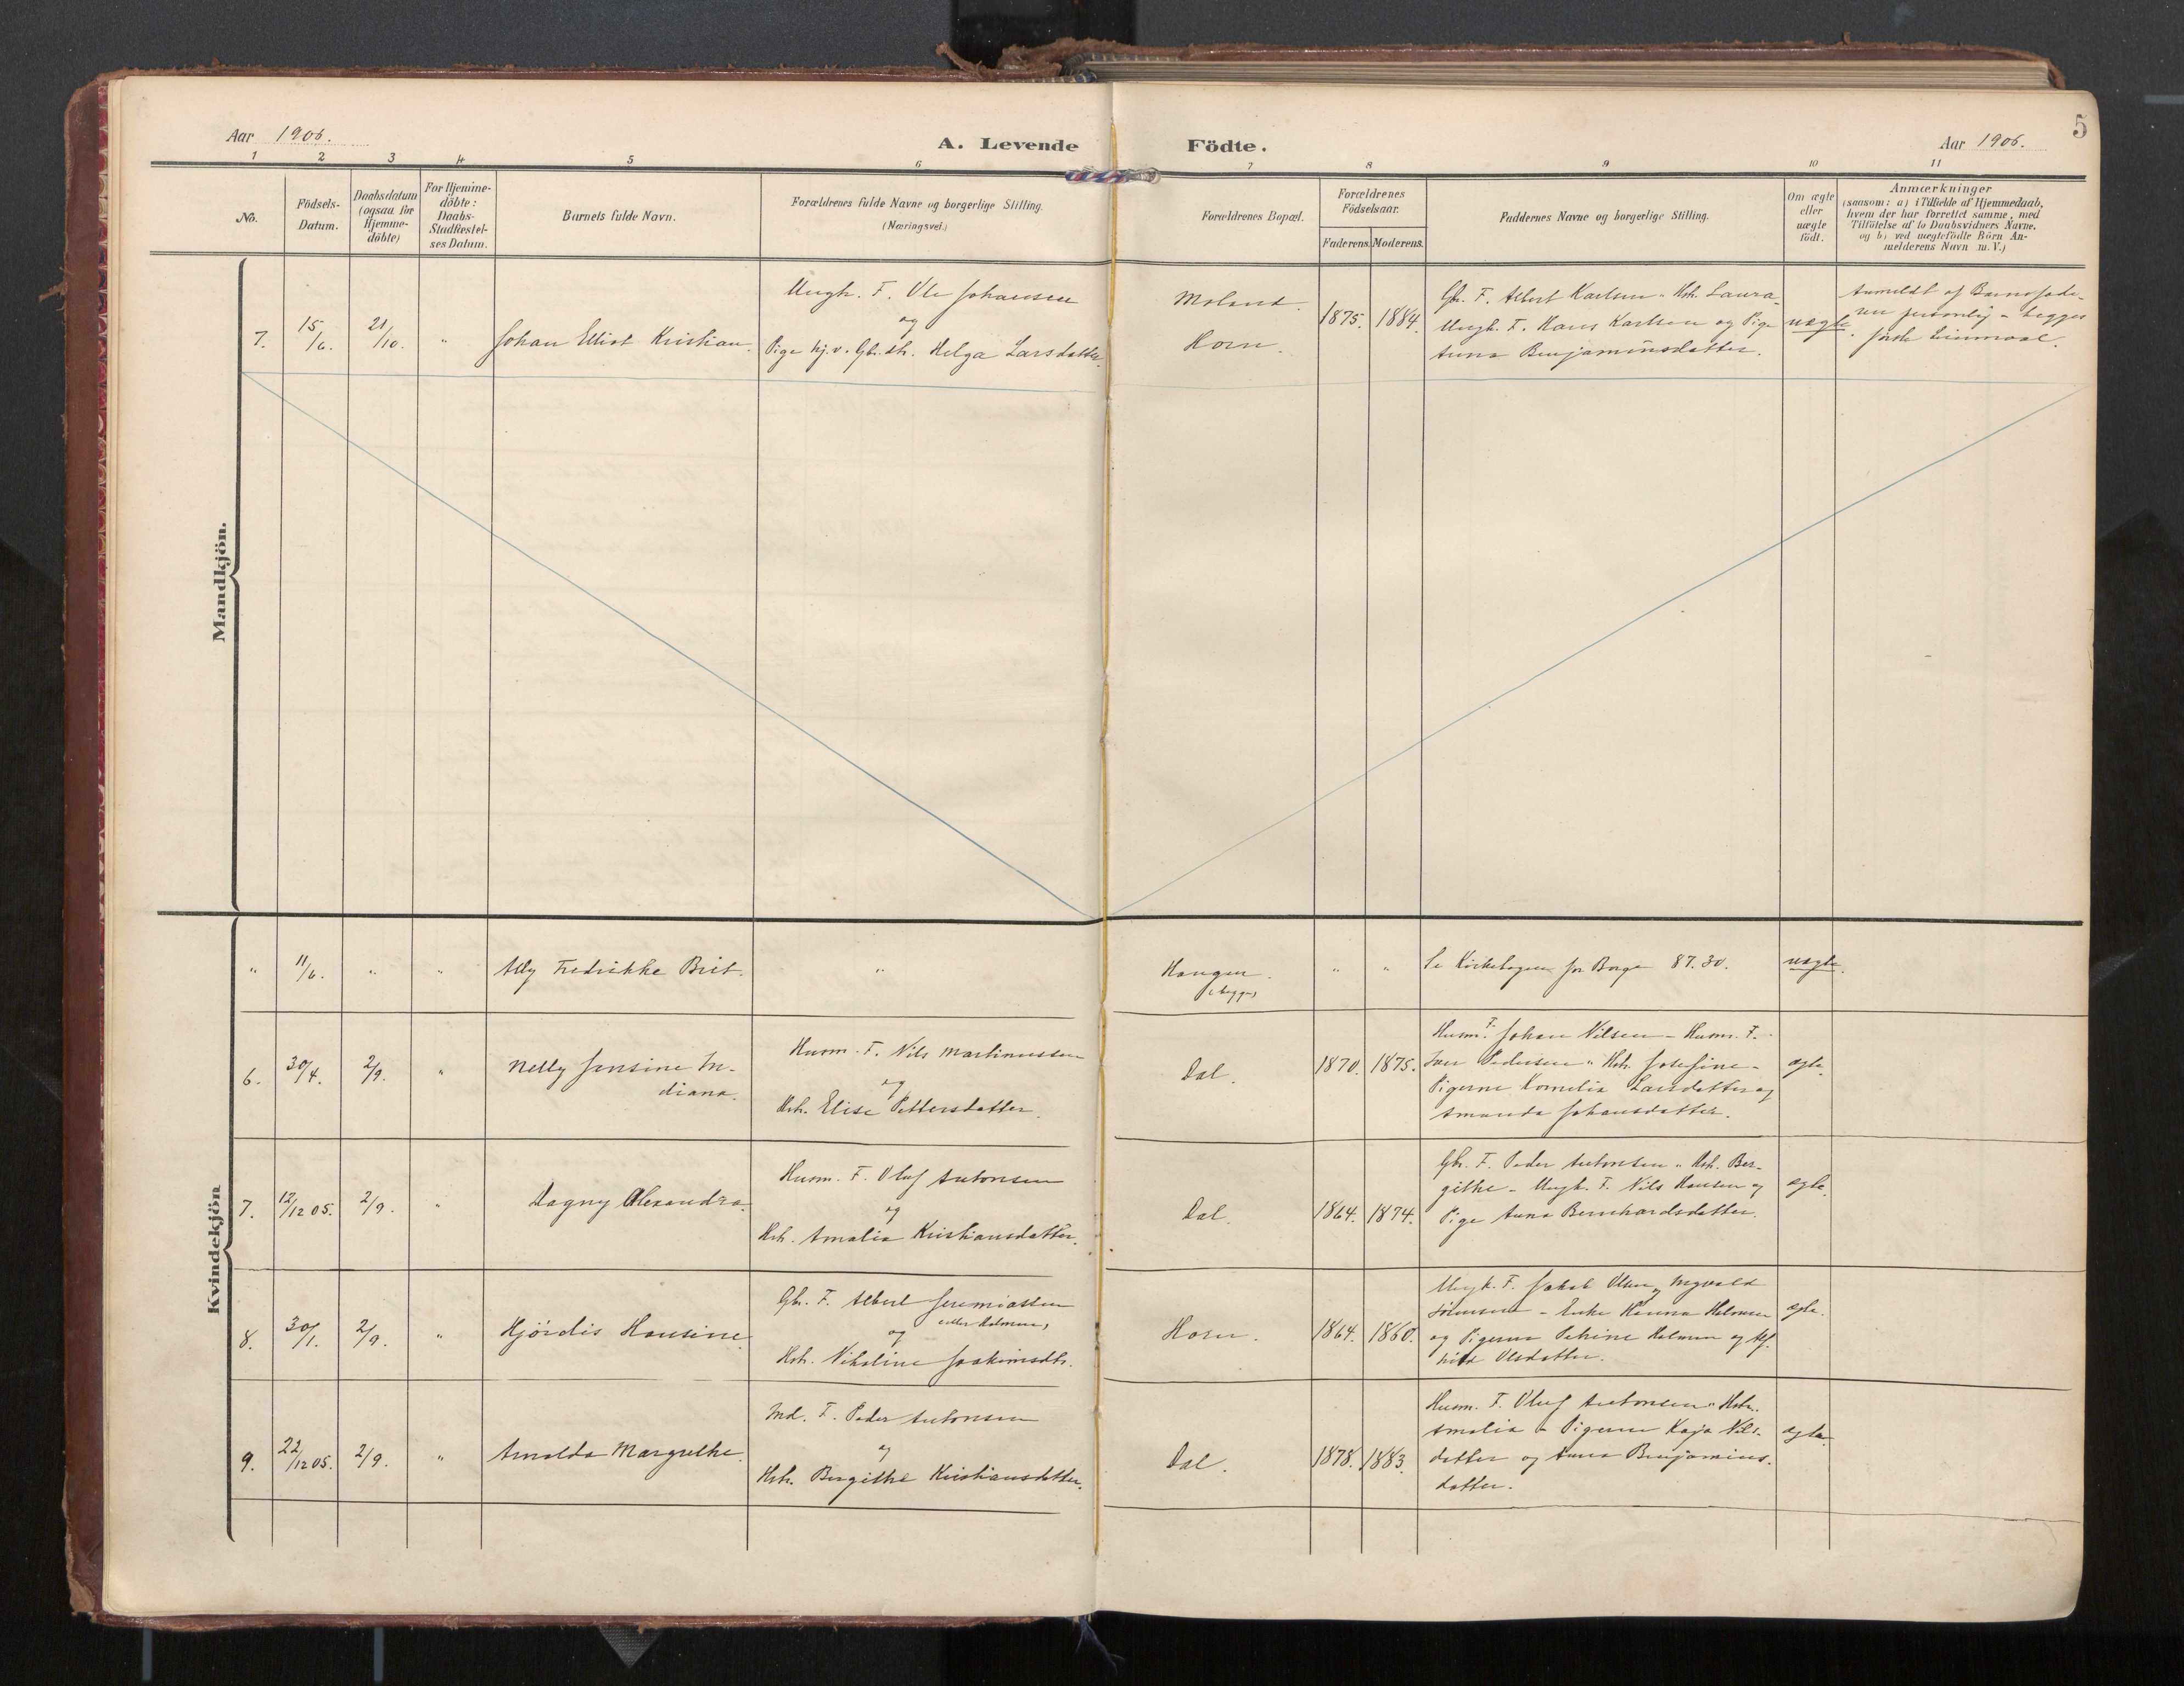 Aar 1906.
A. Levende Födte.
Aar 1906.
5
1 2 3 4 5 6 7 8 9 10 11
No.
Födsels-
Datum.
Daabsdatum
(ogsaa for
Hjemme-
döbte)
For Hjemme-
döbte:
Daabs-
Stadfæstel-
ses Datum.
Barnets fulde Navn.
Forældrenes fulde Navne og borgerlige Stilling.
(Næringsvei.)
Forældrenes Bopæl.
Forældrenes
Födselsaar.
Faderens. Moderens.
Faddernes Navne og borgerlige Stilling.
Om ægte
eller
uægte
födt.
Anmærkninger
(saasom: a) i Tilfælde af Hjemmedaab,
hvem der har forrettet samme, med
Tilföielse af to Daabsvidners Navne.
og b) ved uægtefödte Börn An-
melderens Navn m. V.)
Mandkjön.
7.
15/6.
21/10.
"
Johan Elliot Kristian.
Ungk. F. Ole Johansen
og
Pige hj. v. Gbr. dtr. Helga Larsdatter.
Moland.
Horn.
1875.
1884.
Gbr. F. Albert Karlsen " Hstr. Laura -
Ungk. F. Hans Karlsen og Pige
Anna Benjaminsdatter.
uægte.
Anmeldt af Barnefade-
ren personlig - begges
første Leiermaal.
Kvindekjön
"
11/6.
"
"
Ally Fredrikke Brit.
"
Haugen.
(begge)
"
"
Se Kirkebogen for Borge 87.30.
uægte.
6.
30/4.
2/9.
"
Nelly Jensine In-
diana.
Husm. F. Nils Martinussen
og
Hstr. Elise Pettersdatter.
Dal.
1870.
1875.
Husm. F. Johan Nilsen - Husm. F.
Pedersen " Hstr. Josefine -
Pigerne Kornelia Larsdatter og
Amanda Johansdatter.
ægte.
7.
12/12 05.
2/9.
"
Dagny Alexandra.
Husm. F. Oluf Antonsen
og
Hstr. Amalia Kristiansdatter.
Dal.
1864.
1874.
Gbr. F. Peder Antonsen " Hstr. Ber-
githe - Ungk. F. Nils Hansen og
Pige Anna Bernhardsdatter.
ægte.
8.
30/1.
2/9.
"
Hjördis Hansine
Gbr. F. Albert Jeremiassen
(eller Holmen)
og
Hstr. Nikoline Joakimsdtr.
Horn.
1864.
1860.
Ungk. F. Jakob Olsen og Ingvald
Sörensen - Enke Hanna Holmen
og Pigerne Petrine Holmen og Alf-
hild Olsdatter.
ægte.
9.
22/12 05.
2/9.
"
Arnolda Margrethe.
Ind. F. Peder Antonsen
og
Hstr. Bergithe Kristiansdatter.
Dal.
1878.
1883.
Husm. F. Oluf Antonsen " Hstr.
Amalia - Pigerne Kaja Nils-
datter og Anna Benjamins-
datter.
ægte.